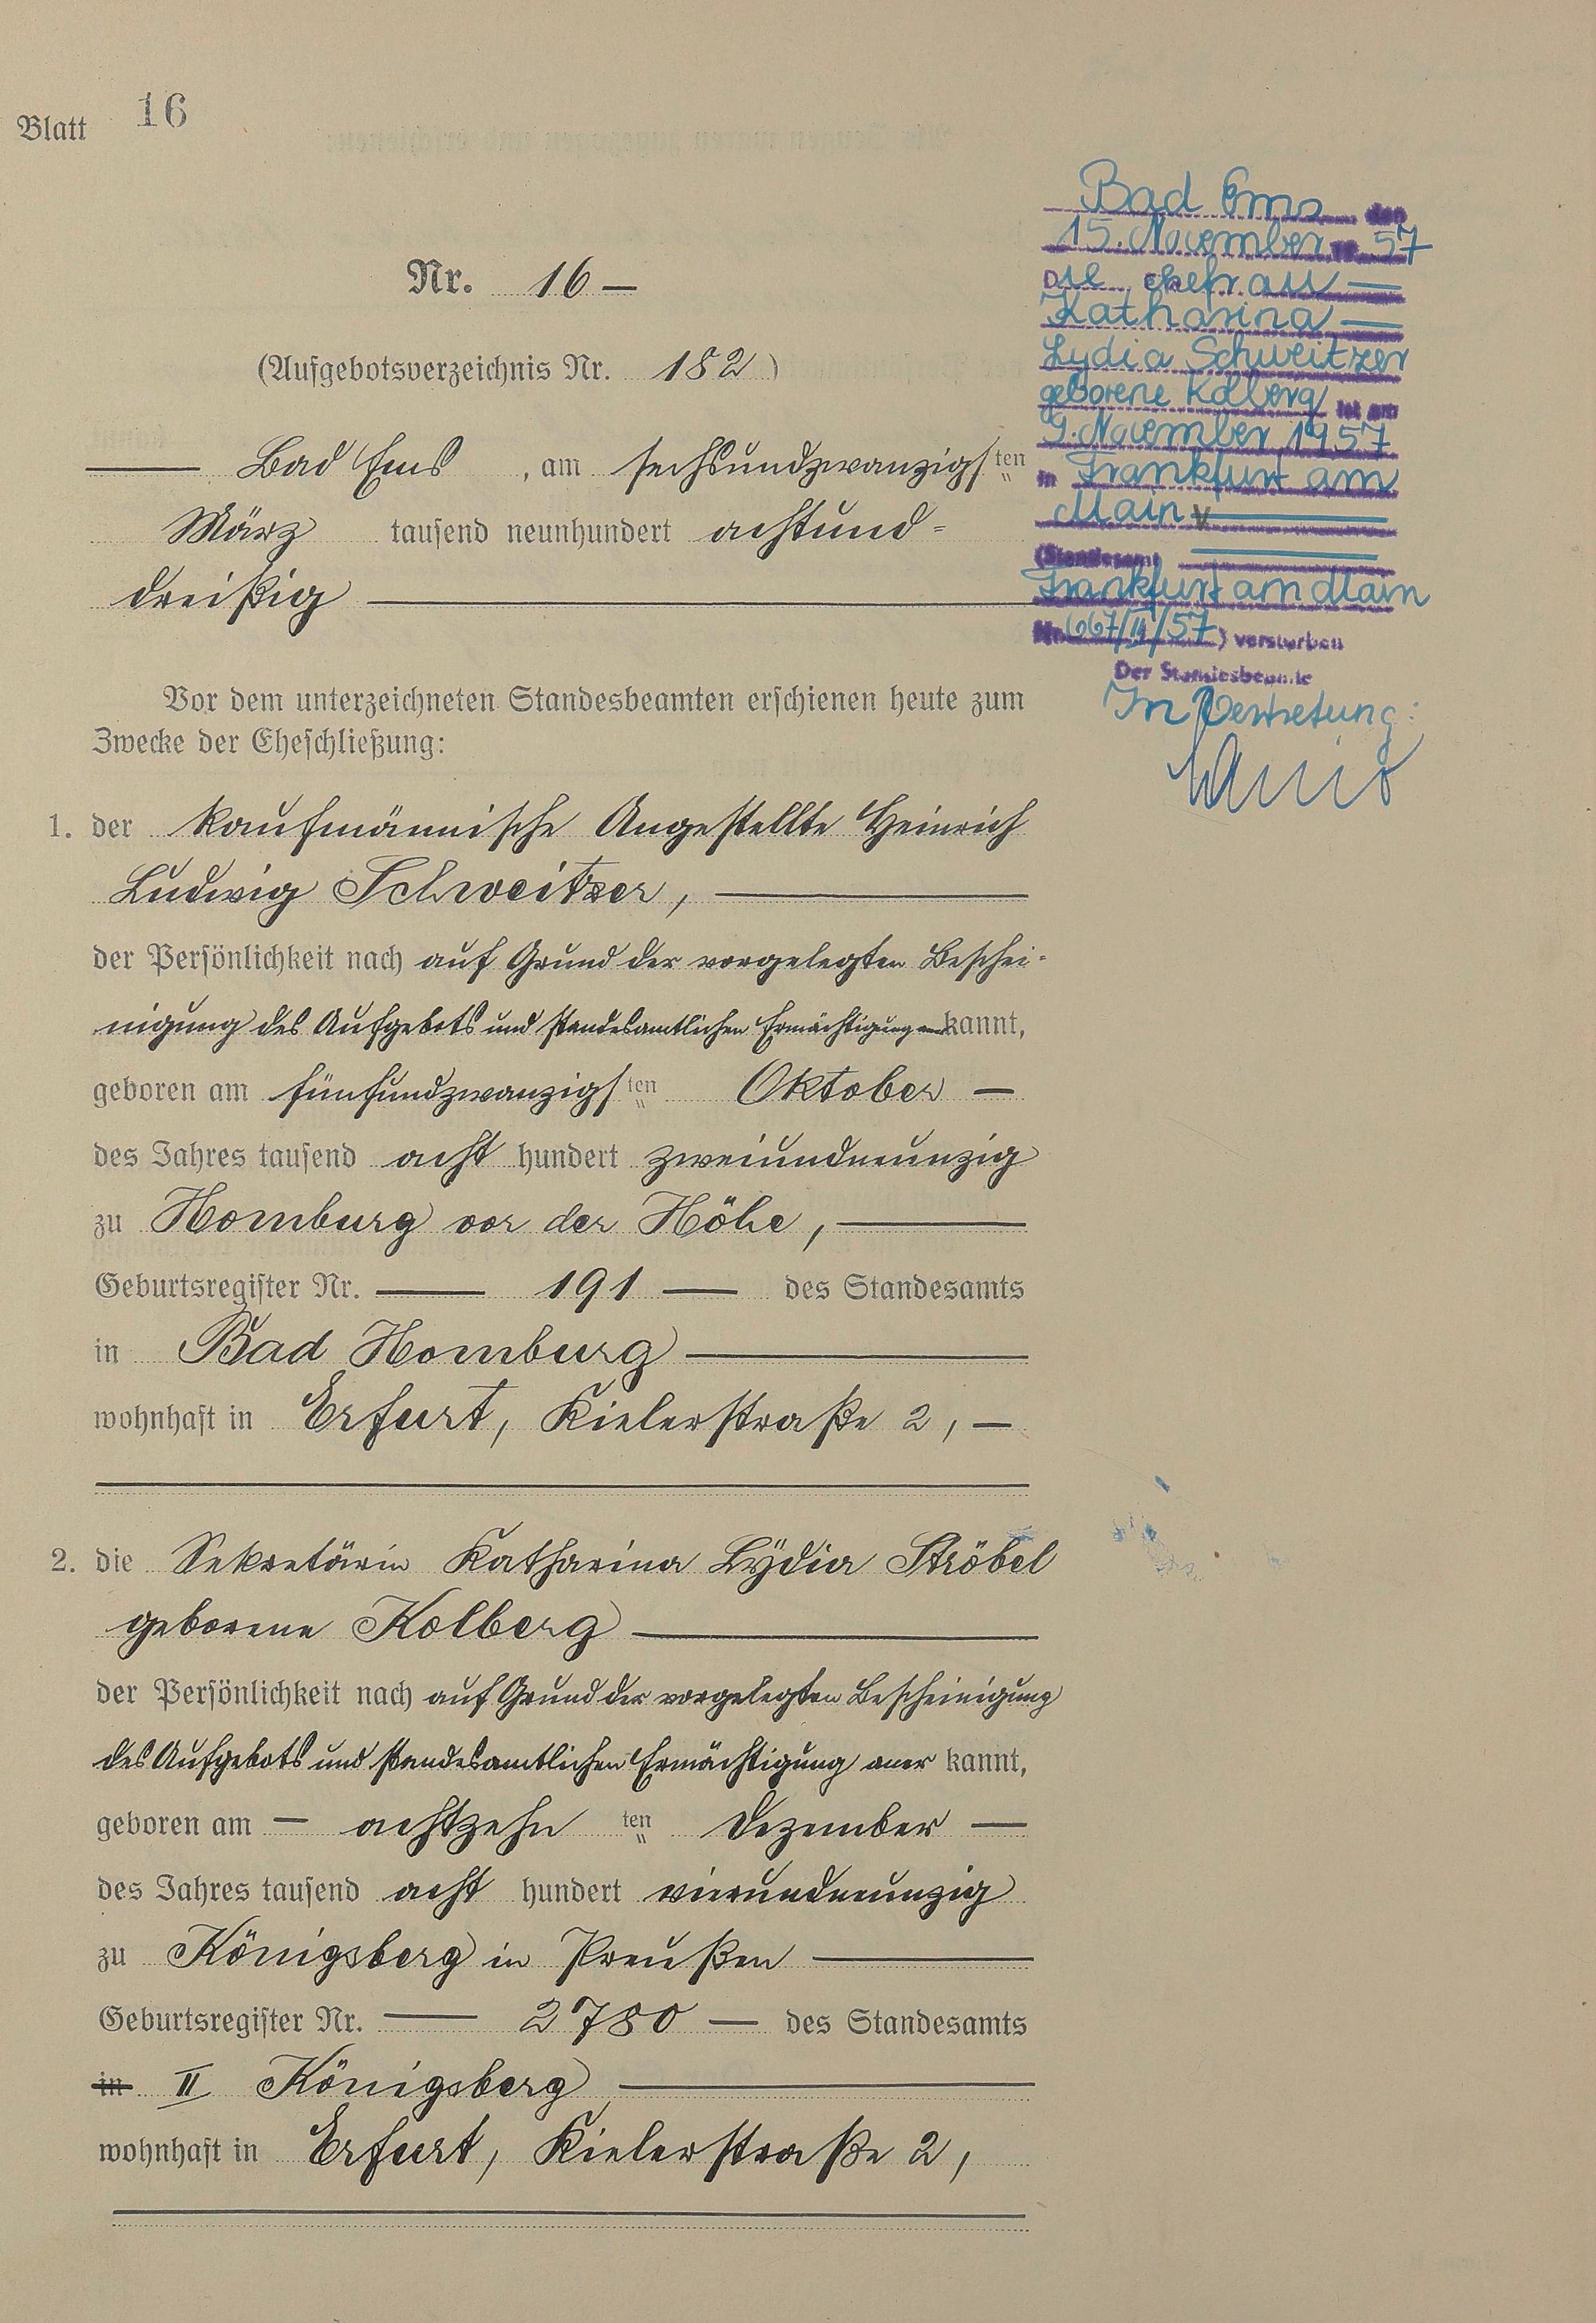 Blatt 16
Nr. 16 —
(Aufgebotsverzeichnis Nr. 182)
— Bad Ems, am sechsundzwanzigsten
März tausend neunhundert achtund=
dreißig —
Vor dem unterzeichneten Standesbeamten erschienen heute zum
Zwecke der Eheschließung:
1. der kaufmännische Angestellte Heinrich
Ludwig Schweitzer, —
der Persönlichkeit nach auf Grund der vorgelegten Beschei-
nigung des Aufgebots und standesamtlichen Ermächtigung anerkannt,
geboren am fünfundzwanzigsten Oktober —
des Jahres tausend acht hundert zweiundneunzig
zu Homburg vor der Höhe, —
Geburtsregister Nr. — 191 — des Standesamts
in Bad Homburg —
wohnhaft in Erfurt, Kielerstraße 2, —
2. die Sekretärin Katharina Lydia Ströbel
geborene Kolberg —
der Persönlichkeit nach auf Grund der vorgelegten Bescheinigung
des Aufgebots und standesamtlichen Ermächtigung anerkannt,
geboren am — achtzehnten Dezember —
des Jahres tausend acht hundert vierundneunzig
zu Königsberg in Preußen —
Geburtsregister Nr. — 2780 — des Standesamts
in II Königsberg —
wohnhaft in Erfurt, Kielerstraße 2,
Bad Ems den
15. November 19 57
Die Ehefrau —
Katharina —
Lydia Schweitzer
geborene Kolberg ist am
9. November 1957
in Frankfurt am
Main —
(Standesamt —
Frankfurt am Main
Nr. 667/II/57) verstorben
Der Standesbeamte
In Vertretung: